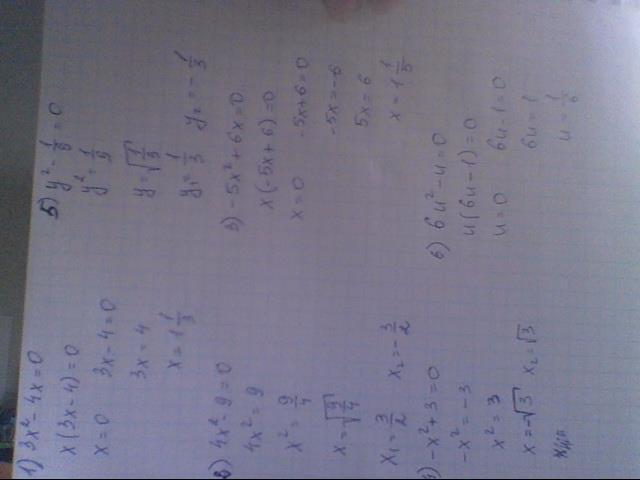 1) 3x² - 4x = 0
x(3x - 4) = 0
x = 0   3x - 4 = 0
3x = 4
x = 1 1/3
2) 4x² - 9 = 0
4x² = 9
x² = 9/4
x = √9/4
x₁ = 3/2   x₂ = -3/2
4) -x² + 3 = 0
-x² = -3
x² = 3
x = -√3   x₂ = √3
5) y² - 1/9 = 0
y² = 1/9
y = √1/9
y₁ = 1/3   y₂ = -1/3
3) -5x² + 6x = 0
x(-5x + 6) = 0
x = 0   -5x + 6 = 0
-5x = -6
5x = 6
x = 1 1/5
6) 6u² - u = 0
u(6u - 1) = 0
u = 0   6u - 1 = 0
6u = 1
u = 1/6